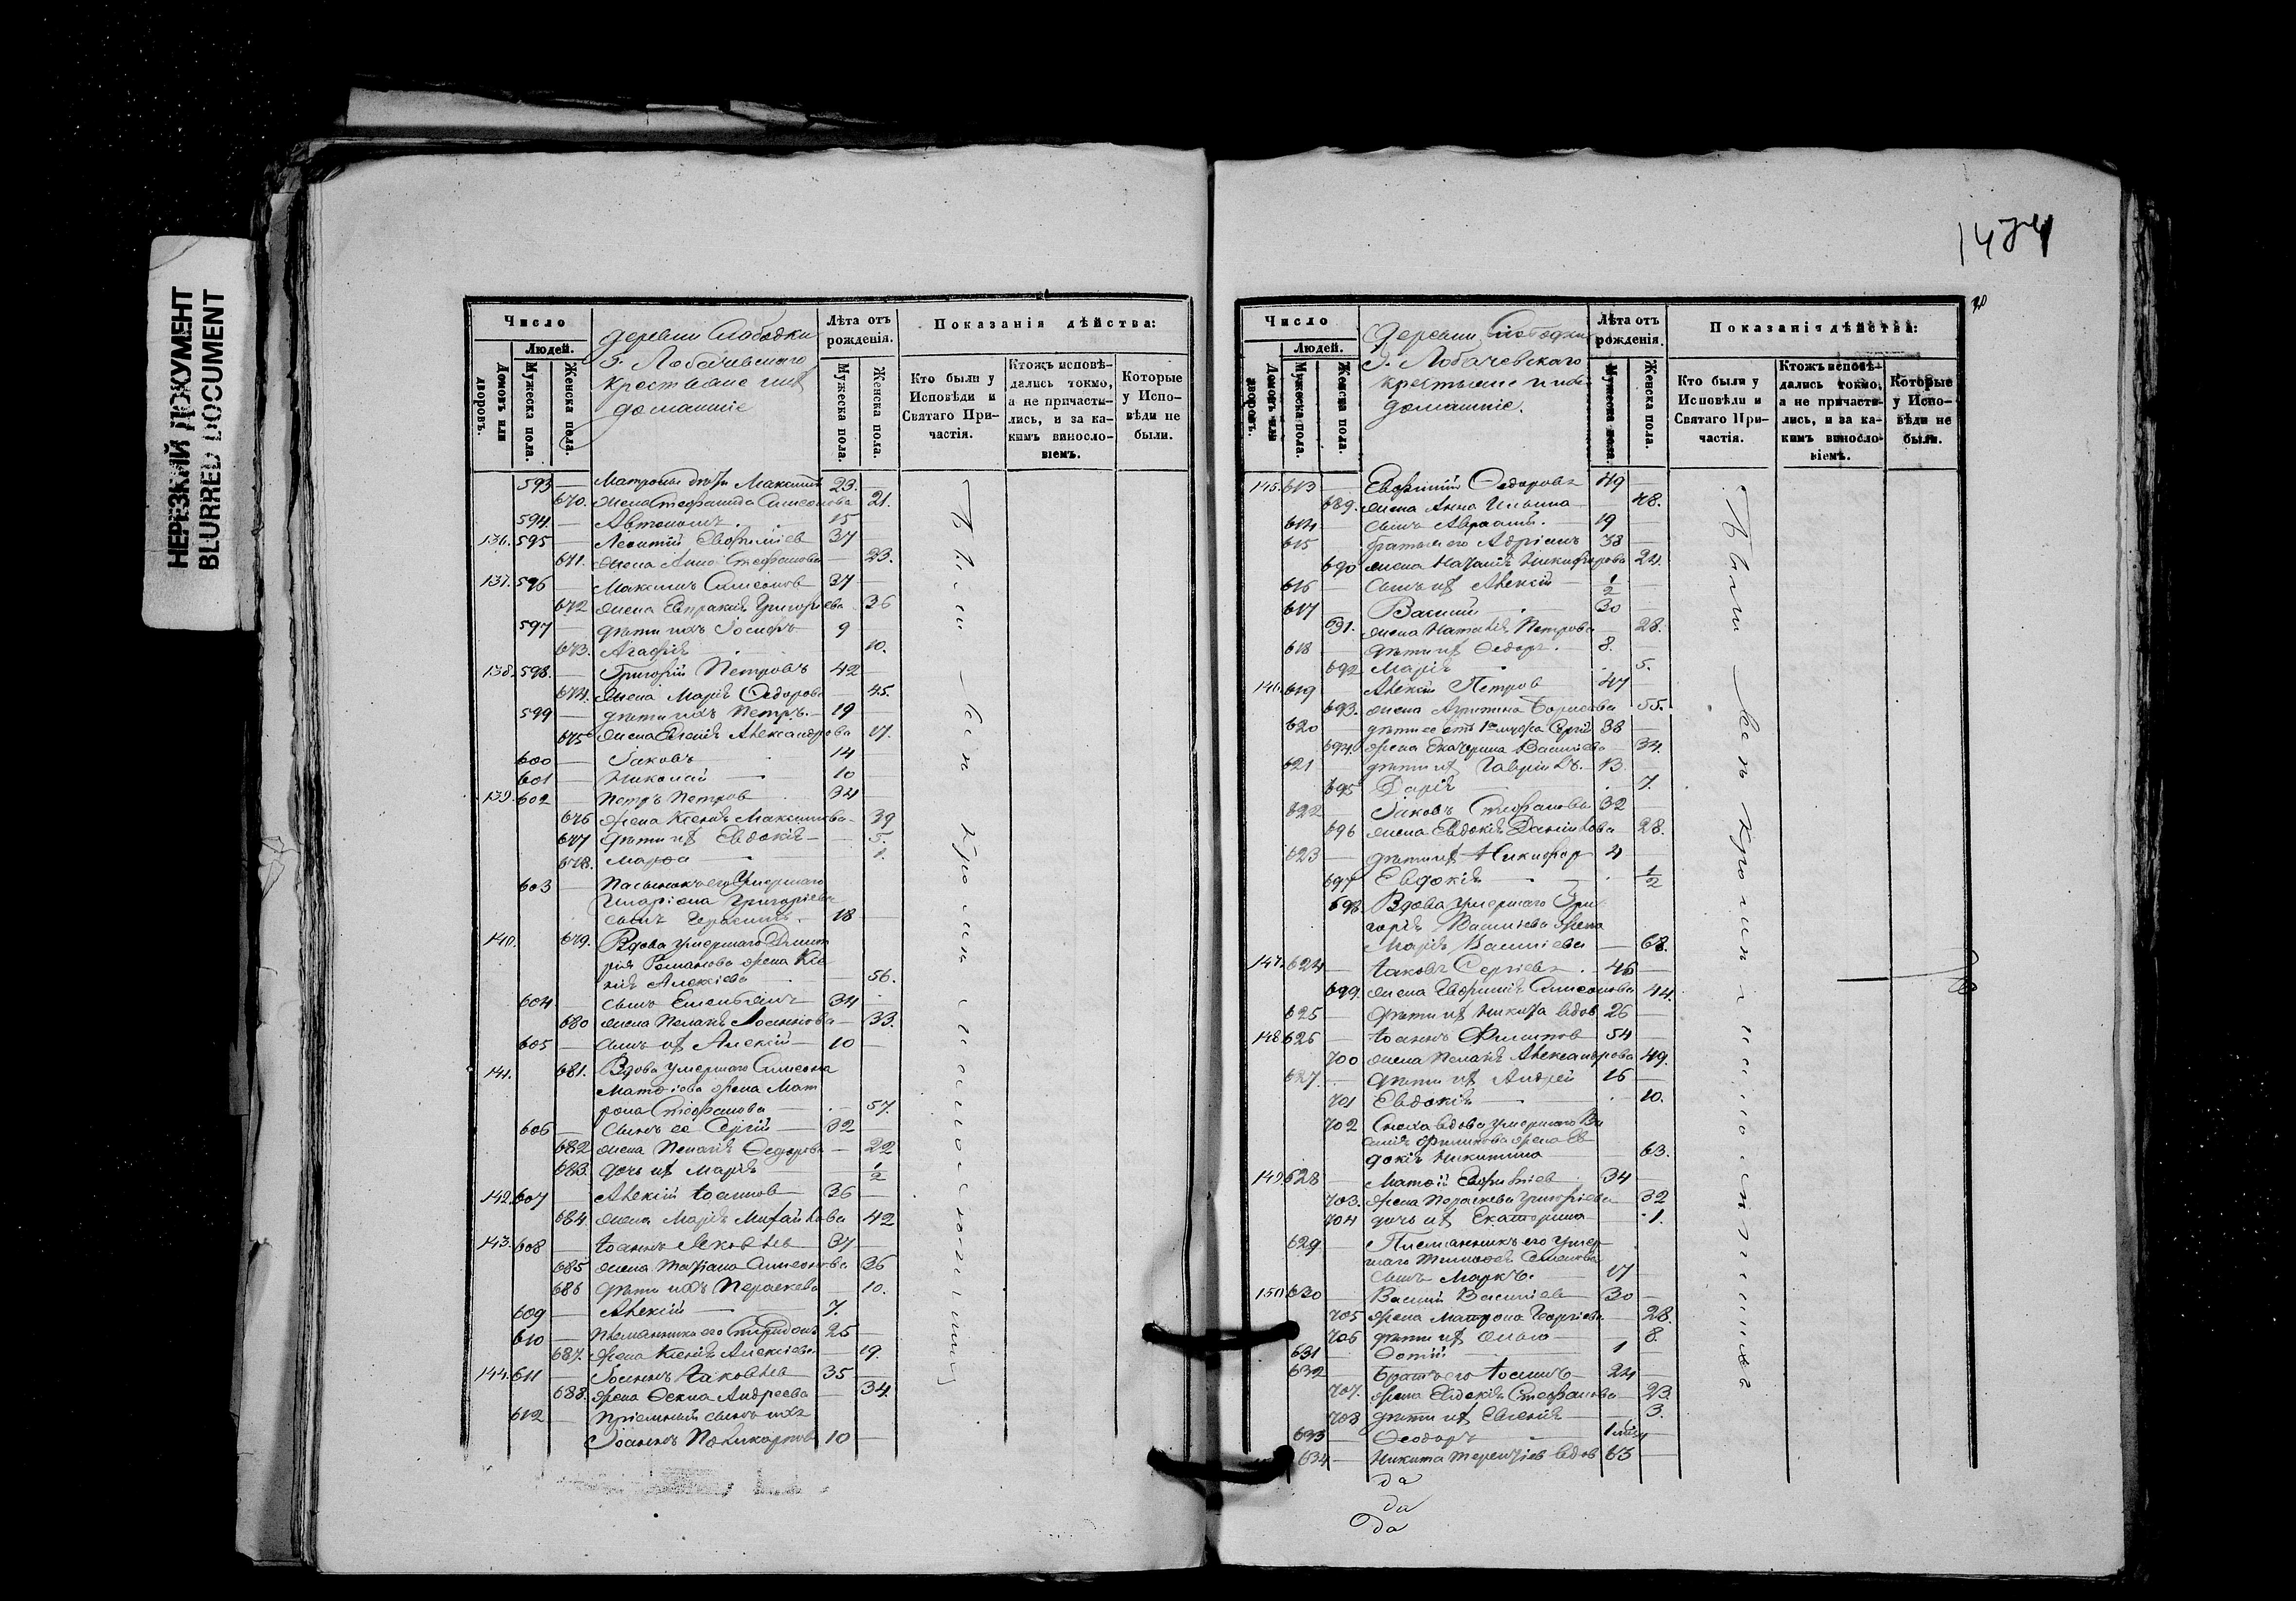 НЕРЕЗКИЙ ДОКУМЕНТ
BLURRED DOCUMENT
Число
Людей.
Домовъ или дворовъ.
Мужеска пола.
Женска пола.
деревни Слободки
г. Лобачевскаго
крестьяне ихъ
домашніе
Лѣта отъ рожденія.
Мужеска пола.
Женска пола.
Показанія дѣйства:
Кто были у Исповѣди и Святаго Причастія.
Ктожъ исповѣдались токмо, а не причастились, и за какимъ винословіемъ.
Которые у Исповѣди не были.
593 — Матроны дѣти Максимъ 23. —
670. жена Стефанида Симеонова — 21.
594. — Автономъ 15 —
136. 595 — Леонтій Евфиміев 37 —
671. жена Анна Стефанова — 23.
137. 596 — Максимъ Симеонов 37 —
672 жена Евпраксія Григорьева 36
597 — дѣти ихъ Іосифъ 9
673. Агафія 10.
138. 598. — Григорій Петровъ 42 —
674. жена Марія Ѳедорова — 45.
599 — дѣти ихъ Петръ. — 19 —
675 жена Евгенія Александрова 17.
600 — Іаковъ 14
601 — Николай — 10
139. 602 — Петръ Петров 34 —
676 жена Ксенія Максимова 39
677 дѣти ихъ Евдокія — 5.
678. Марѳа — 1.
603 — Пасынокъ его Умершаго
Иларіона Григоріева
сынъ Герасимъ. 18 —
140. 679. Вдова умершаго Димит
рія Романова жена Ксе
нія Алексіева — 56.
604 — сынъ Емельянъ 34
680 жена Пелагія Іоаннова — 33.
605 — сынъ их Алексій — 10 —
141. 681. Вдова умершаго Симеона
Матѳіева жена Мат
рона Стефанова — 57.
606 — Сынъ ее Сергій — 32 —
682 жена Пелагія Ѳедорова — 22
683. дочь их Марія 1/2
142. 607 — Алексій Іоаннов 36 —
684. жена Марія Михайлова 42
143. 608 — Іоаннъ Яковлев 37 —
685 жена Татіана Симеонова 36
686 дѣти ихъ Параскева 10.
609 — Алексій — 7. —
610 — Племянникъ его Спиридонъ 25 —
687. жена Ксенія Алексіева — 19.
144. 611 — Іоаннъ Іаковлев 35 —
688. жена Ѳекла Андреева — 34.
612 — Пріемный сынъ ихъ
Іоаннъ Поликарпов 10 —
Были
1474
Число
Людей.
Домовъ или дворовъ.
Мужеска пола.
Женска пола.
деревни Слободки
г. Лобачевскаго
крестьяне и их
домашніе.
Лѣта отъ рожденія.
Мужеска пола.
Женска пола.
Показанія дѣйства:
Кто были у Исповѣди и Святаго Причастія.
Ктожъ исповѣдались токмо, а не причастились, и за какимъ винословіемъ.
Которые у Исповѣди не были.
145. 613 — Евфимій Ѳедоровъ 49 —
689. жена Анна Ильина 48.
614 — сынъ Авраамъ. — 19 —
615 братья его Адріанъ 33 —
690 жена Наталія Никифорова 24.
616 — сынъ их Алексій — 1/2 —
617 — Василій 30 —
691. жена Наталія Петрова — 28.
618 — дѣти их Ѳедоръ. — 8. —
692 Марія 5.
146. 619 — Алексій Петров 47 —
693. жена Агрипина Борисова 55.
620 — дѣти ее отъ 1го мужа Сергій 38 —
694. жена Екатерина Василіева — 34.
621 дѣти их Гавріилъ. — 13. —
695 Дарія 7.
622 — Іаковъ Стефановъ 32 —
696 жена Евдокія Даніилова — 28.
623 — дѣти их Никифор 4 —
697 Евдокія 1/2
698. Вдова умершаго Гри
горія Василіева жена
Марія Василіева — 68.
147. 624 — Іаковъ Сергіевъ. 46 —
699. жена Евфимія Симеонова 44.
625 — дѣти их Никита вдов 26 —
148 626 — Іоаннъ Филипов 54 —
700 жена Пелагія Александрова 49.
627 — дѣти их Андрей 16 —
701 Евдокія 10.
702 Сноха вдова умершаго Ва
силія Филипова жена Ев
докія Никитина 63.
149. 628 — Матѳій Евфиміев 34 —
703. жена Параскева Григоріева — 32
704 дочь их Екатерина — 1.
629 — Племянникъ его умер
шаго Тимоѳея Семенова
сынъ Маркъ. 17 —
150. 630 — Василій Василіев 30 —
705 жена Матрона Георгіева — 28.
706 дѣти их 8.
631 — Фотій 1 —
632 — братъ его Іоаннъ — 24 —
707. жена Евдокія Стефанова — 23.
708 дѣти их Евгенія — 3.
633 — Ѳеодоръ 1
634 — Никита Терентіев вдов 63 —
да
да
да
Были